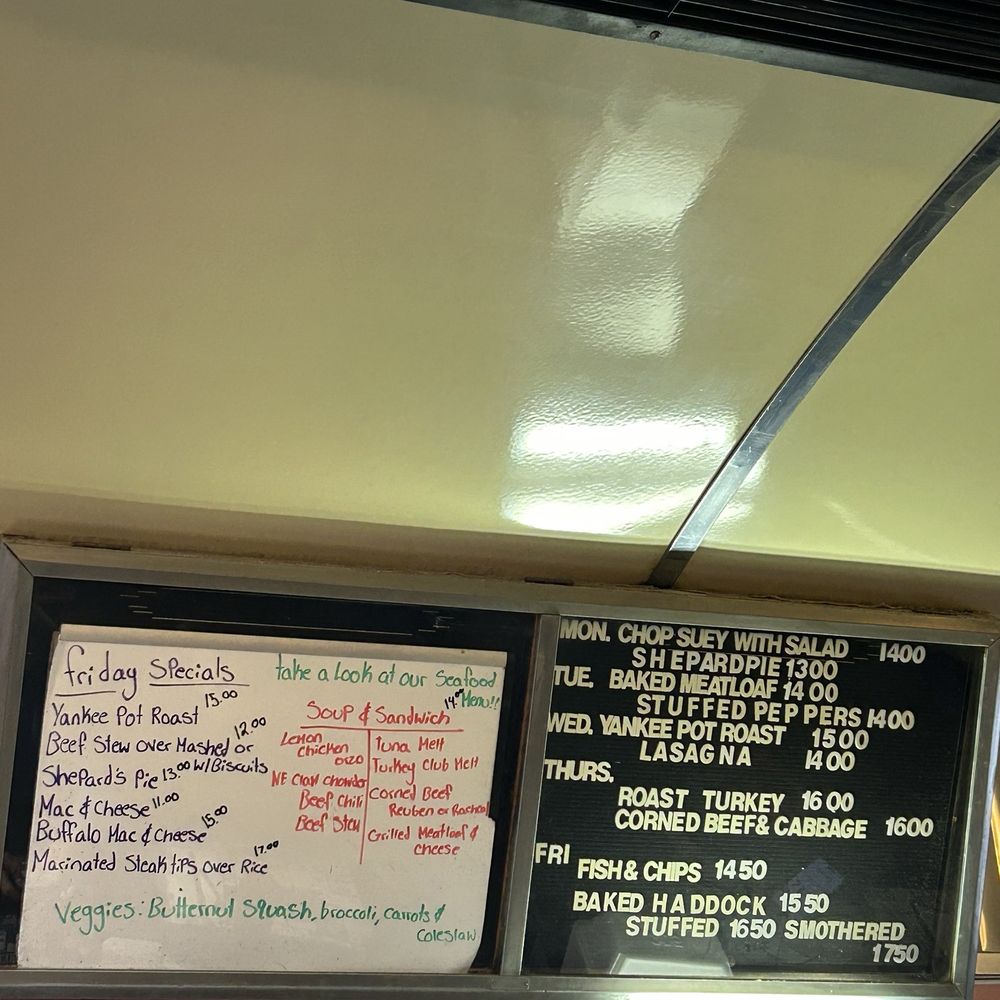 friday Specials
Yankee Pot Roast 15.00
Beef Stew over Mashed or 12.00
w/Biscuits
Shepard's Pie 13.00
Mac & Cheese 11.00
Buffalo Mac & Cheese 15.00
Marinated Steak tips over Rice 17.00
take a Look at our Seafood
Menu!!
Soup & Sandwich 14.00
Lemon
chicken
orzo
NE Clam chowder
Beef Chili
Beef Stew
Tuna Melt
Turkey Club Melt
Corned Beef
Reuben or Rachael
Grilled Meatloaf &
cheese
Veggies: Butternut Squash, broccoli, carrots &
Coleslaw
MON. CHOP SUEY WITH SALAD 1400
SHEPARDPIE 1300
TUE. BAKED MEATLOAF 1400
STUFFED PEPPERS 1400
WED. YANKEE POT ROAST 1500
LASAGNA 1400
THURS.
ROAST TURKEY 1600
CORNED BEEF & CABBAGE 1600
FRI
FISH & CHIPS 1450
BAKED HADDOCK 1550
STUFFED 1650 SMOTHERED
1750